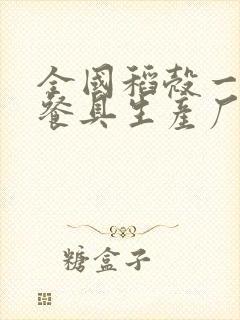 全國稻殼一
餐具生產厂
糖盒子